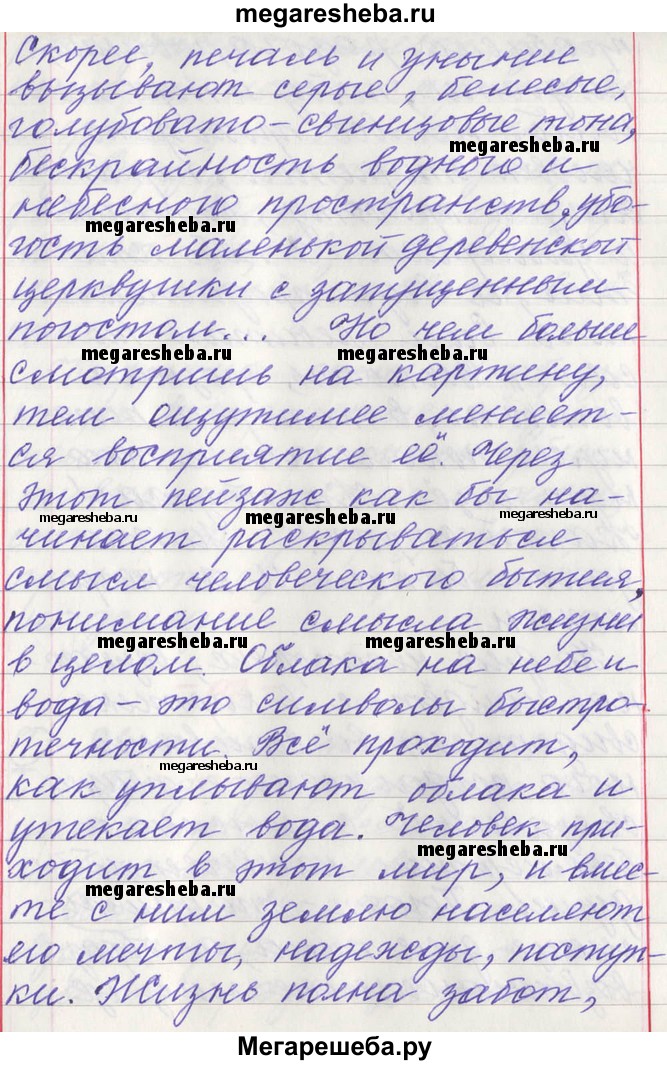 megaresheba.ru
Скорее, печаль и уныние
вызывают серые, белесые,
голубовато-свинцовые тона,
megaresheba.ru
бескрайность водного и
небесного пространств, убо-
megaresheba.ru
гость маленькой деревенской
церквушки с запущенным
погостом... Но чем больше
megaresheba.ru megaresheba.ru
смотришь на картину,
тем ощутимее меняет-
ся восприятие её. Через
этот пейзаж как бы на-
megaresheba.ru megaresheba.ru megaresheba.ru
чинает раскрываться
смысл человеческого бытия,
понимание смысла жизни
megaresheba.ru megaresheba.ru
в целом. Облака на небе и
вода - это символы быстро-
течности. Всё проходит,
megaresheba.ru
как уплывают облака и
утекает вода. Человек при-
megaresheba.ru
ходит в этот мир, и вмес-
megaresheba.ru
те с ним землю населяют
его мечты, надежды, поступ-
ки. Жизнь полна забот,
Мегарешеба.ру